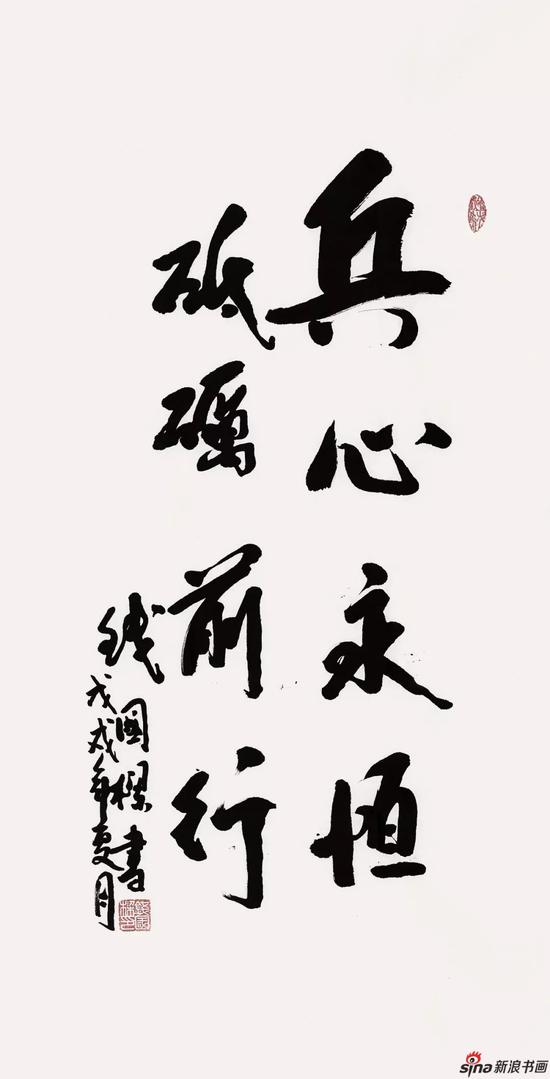 兵心永恒
砥礪前行
钱國樑書
戊戌年夏月
sina新浪书画